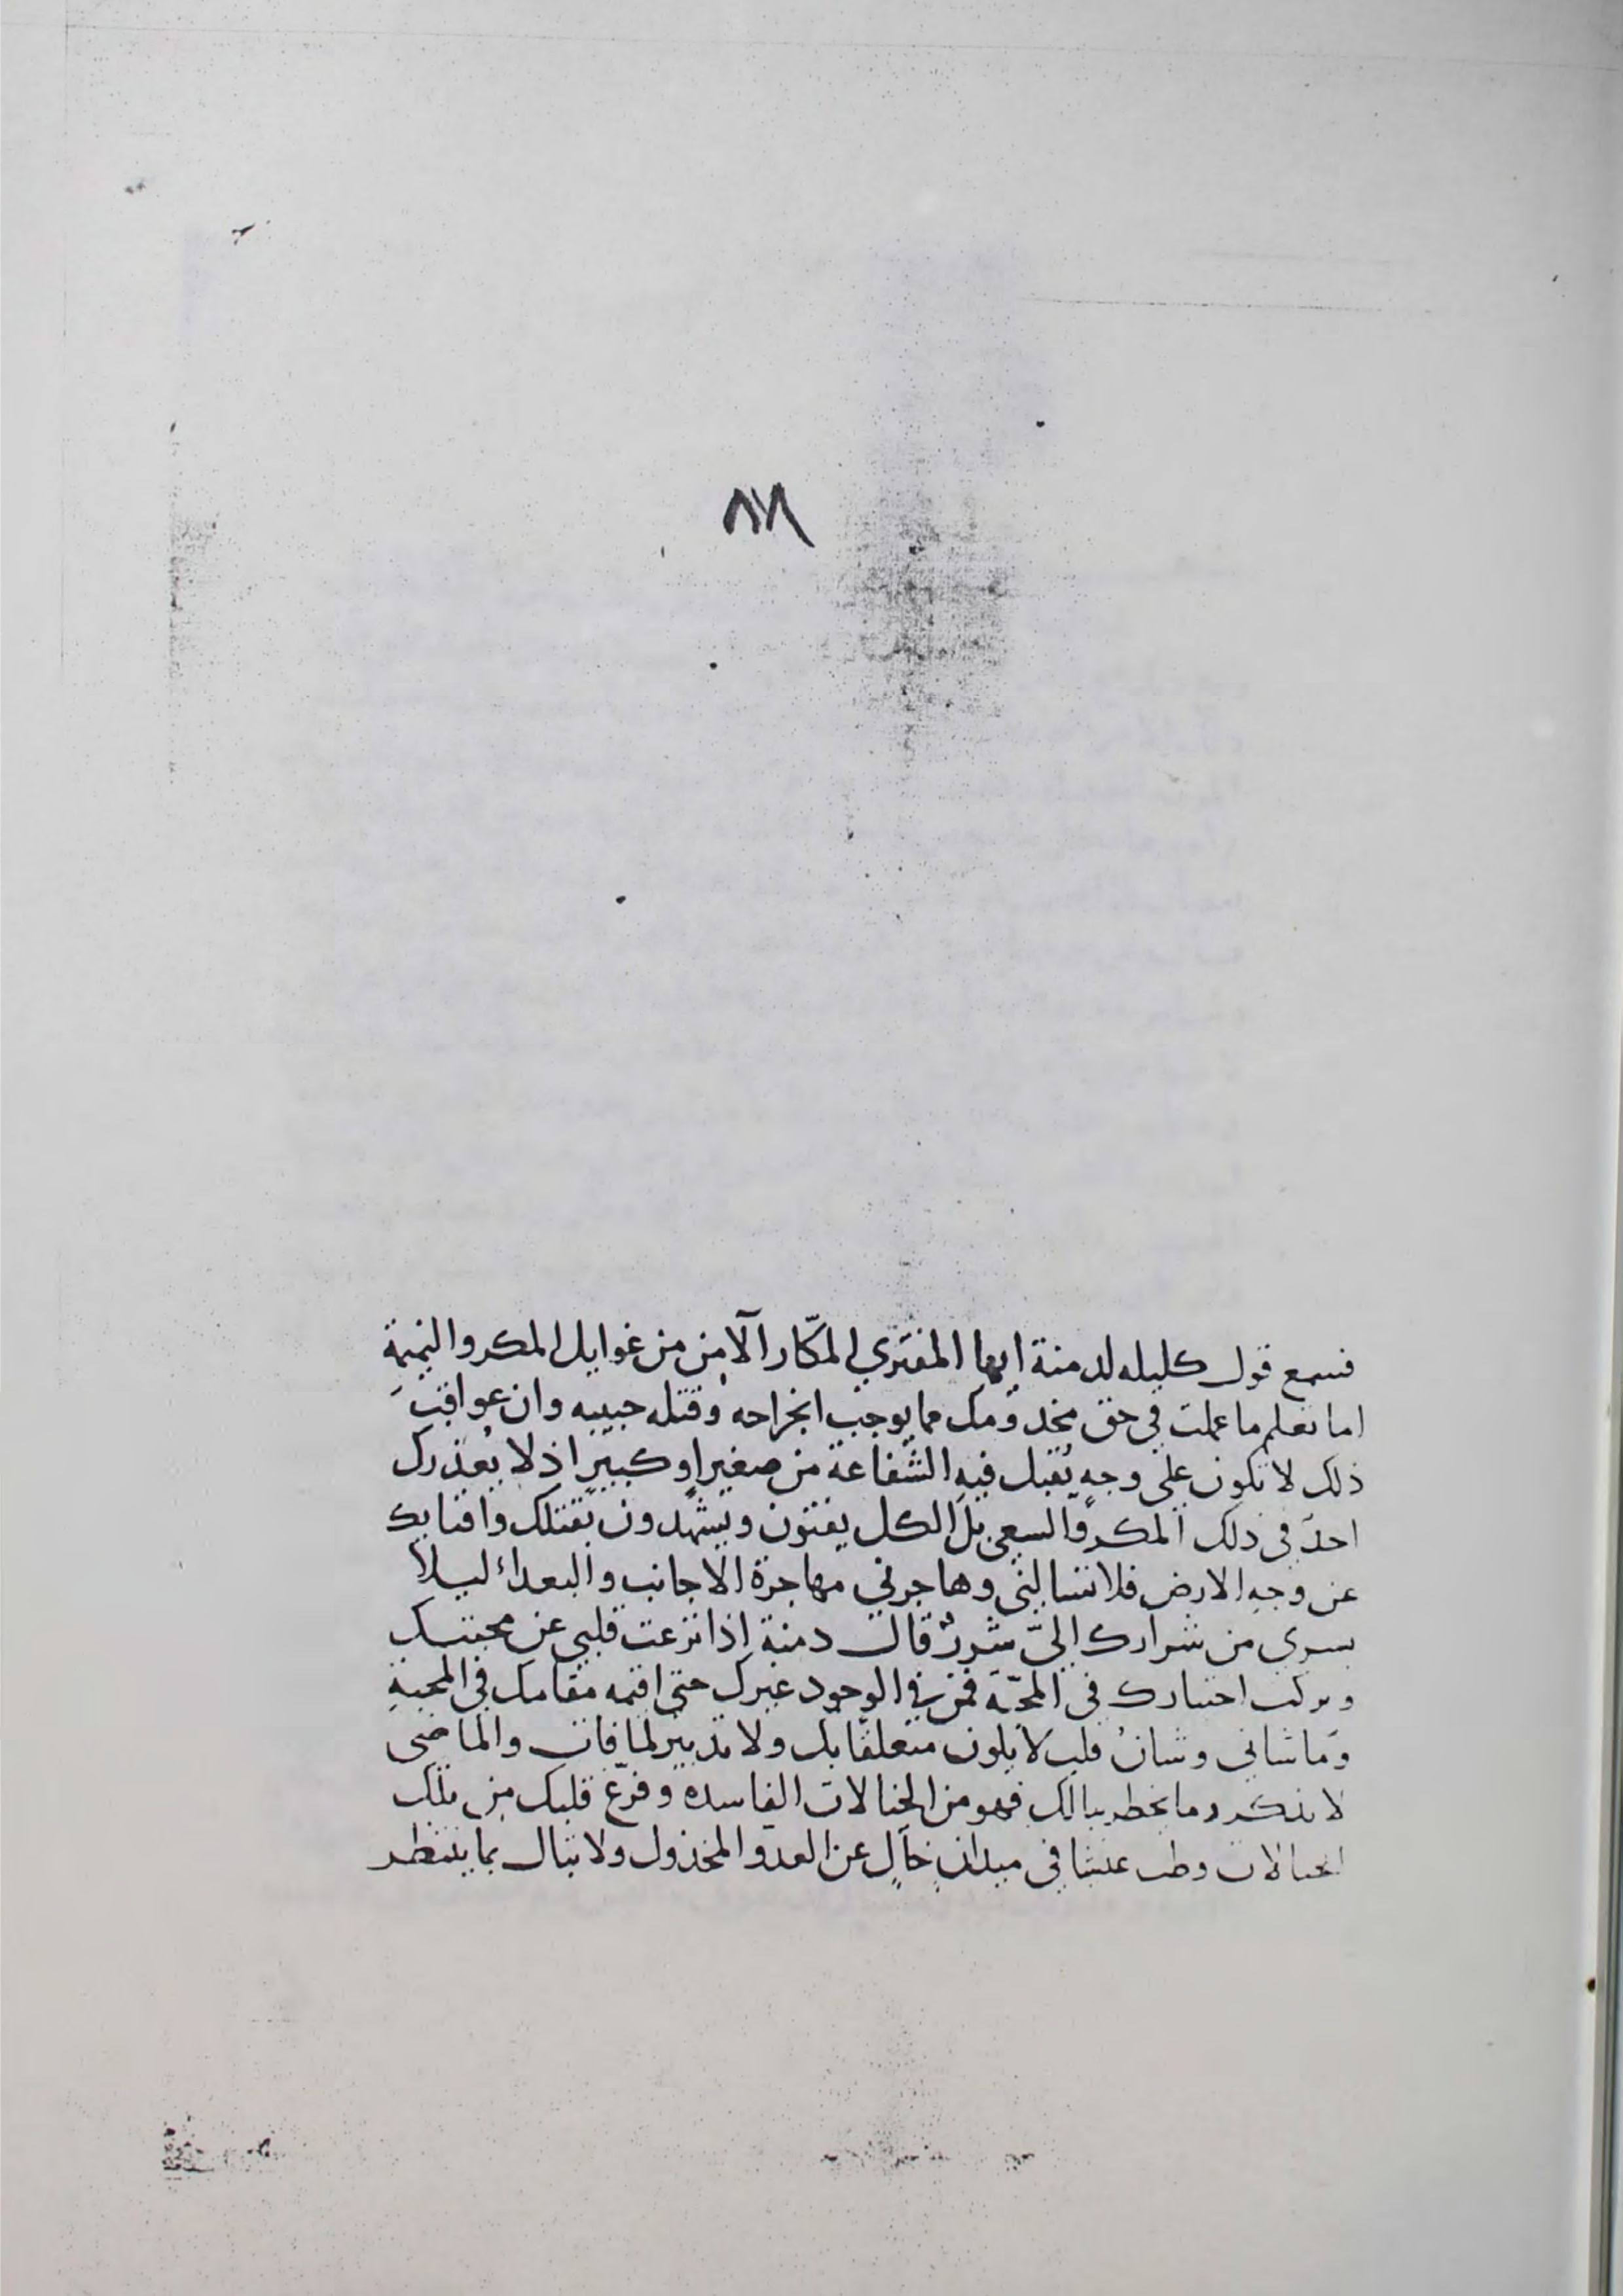 ٨٧
فسمع قول كليله لدمنة ايها المفتري المكّار الآمن من غوايل المكر والنميمة
اما تعلم ما عملت في حق مخدومك مما يوجب انجراحه وقتله حبيبه وان عواقبَ
ذلك لا تكون على وجهٍ يُقبل فيه الشفاعة من صغيرٍ او كبيرٍ اذ لا يُعذرك
احدٌ في ذلك المكر والسعي بل الكل يفتون ويشهدون بقتلك وافنايك
عن وجه الارض فلا تسالني وهاجرني مهاجرة الاجانب والبعداء ليلا
يسري من شرارك اليّ شررٌ قال دمنة اذا نزعت قلبي عن محبتك
وتركت اختيارك في المحبّة فمن في الوجود غيرك حتى اقيمه مقامك في المحبةِ
وما شاني وشانُ قلبٍ لا يكون متعلقًا بك ولا تدبير لما فات والماضى
لا يذكر وما يخطر ببالك فهو من الخيالات الفاسده وفرّغ قلبك من تلك
الخيالات وطب عيشا في ميدانٍ خالٍ عن العدو المخذول ولا تبال بما ينتظر